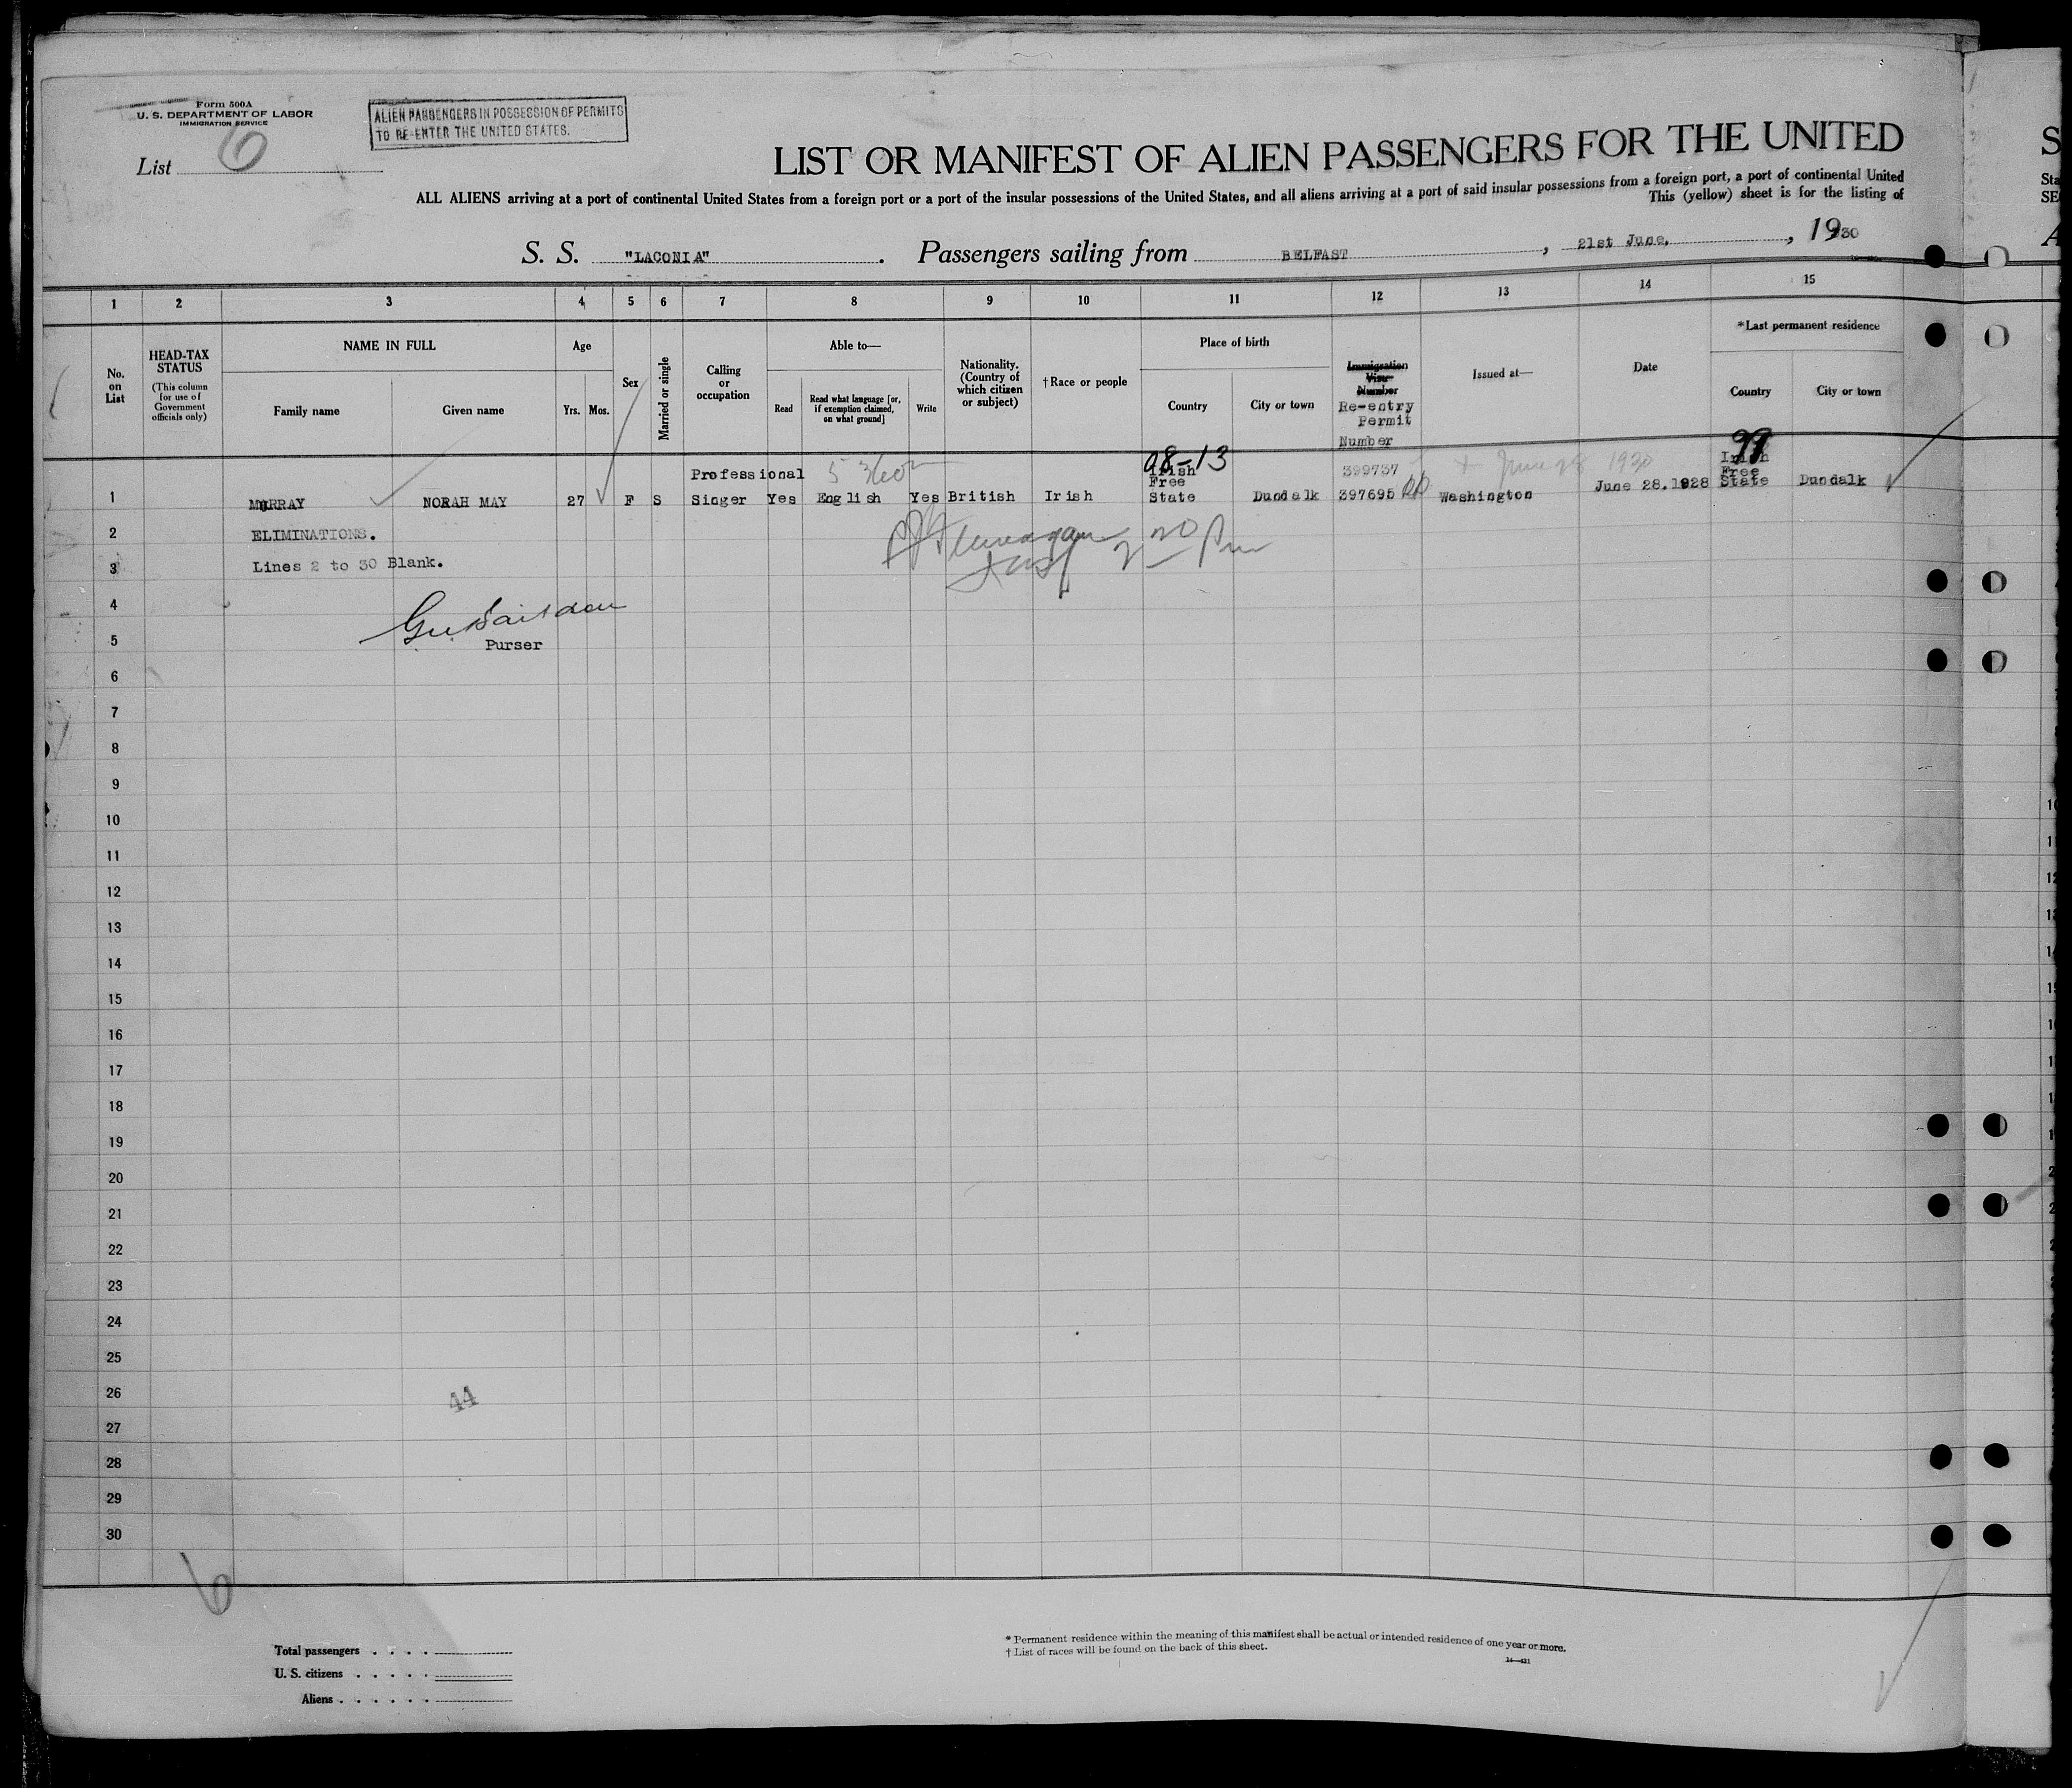 Form 500A
U. S. DEPARTMENT OF LABOR
IMMIGRATION SERVICE
ALIEN PASSENGERS IN POSSESSION OF PERMITS
TO RE-ENTER THE UNITED STATES.
List 6
LIST OR MANIFEST OF ALIEN PASSENGERS FOR THE UNITED
ALL ALIENS arriving at a port of continental United States from a foreign port or a port of the insular possessions of the United States, and all aliens arriving at a port of said insular possessions from a foreign port, a port of continental United
This (yellow) sheet is for the listing of
S. S. "LACONIA". Passengers sailing from BELFAST, 21st June, 1930
1 2 3 4 5 6 7 8 9 10 11 12 13 14 15
No. on List
HEAD-TAX STATUS
(This column for use of Government officials only)
NAME IN FULL
Family name Given name
Age
Yrs. Mos.
Sex
Married or single
Calling or occupation
Able to—
Read
Read what language [or, if exemption claimed, on what ground]
Write
Nationality. (Country of which citizen or subject)
†Race or people
Place of birth
Country City or town
Immigration Visa Number
Re-entry Permit Number
Issued at—
Date
*Last permanent residence
Country City or town
08-13
99
399737
June 28 1930
1 MURRAY NORAH MAY 27 F S Professional Singer Yes English Yes British Irish Irish Free State Dundalk 397695 Washington June 28.1928 Irish Free State Dundalk
2 ELIMINATIONS.
3 Lines 2 to 30 Blank.
4
5 Purser
6
7
8
9
10
11
12
13
14
15
16
17
18
19
20
21
22
23
24
25
26
44
27
28
29
30
6
Total passengers
U. S. citizens
Aliens
* Permanent residence within the meaning of this manifest shall be actual or intended residence of one year or more.
† List of races will be found on the back of this sheet.